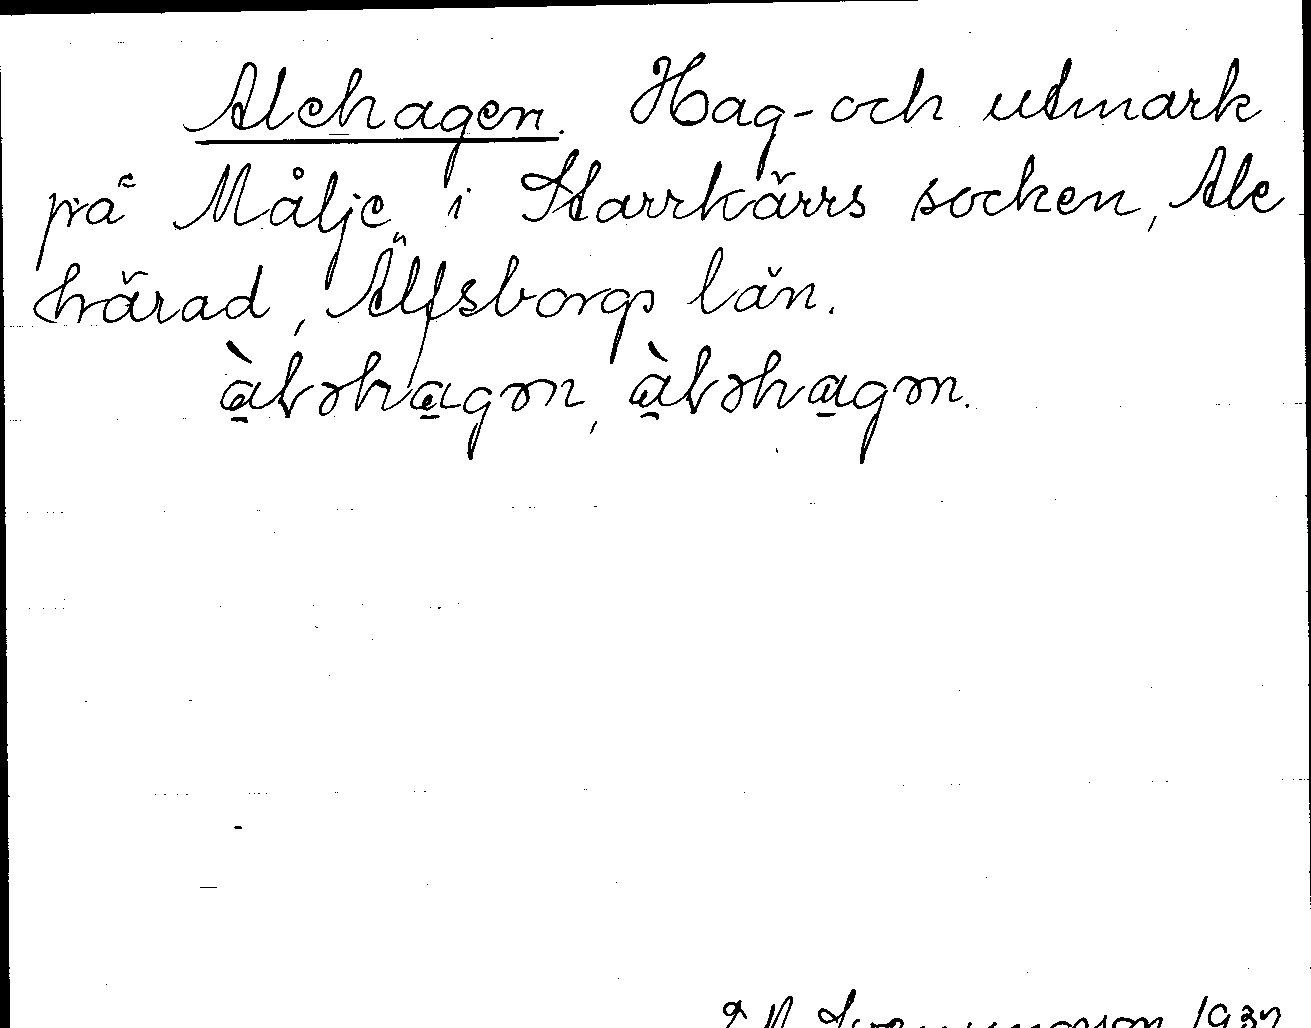 Alehagen. Hag- och utmark
på Målje i Starrkärrs socken, Ale
härad, Älfsborgs län.
àləhagən, àləhagən.
1932